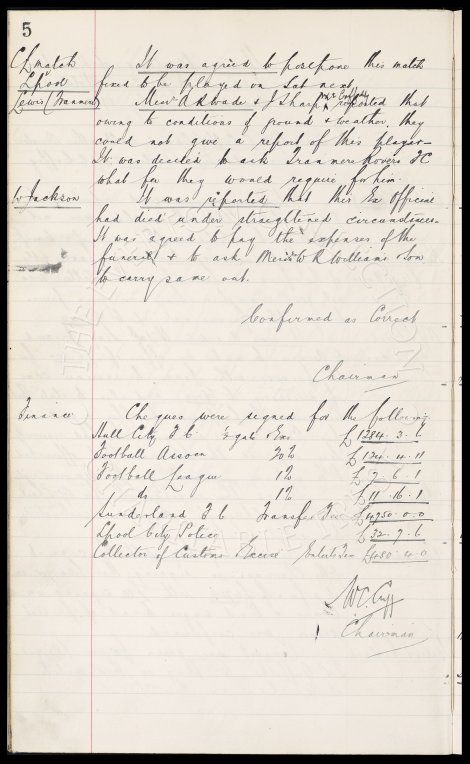 5
CL match It was agreed to postpone this match
Lpool fixed to be played on Sat next
Lewis (Tranmere) Messrs A R Wade & J Sharp reported that
owing to conditions of ground & weather, they
could not give a report of this player –
It was decided to ask Tranmere Rovers FC
what for they would require for him.
W Jackson It was reported that this Ex Official
had died under straightened circumstances.
It was agreed to pay the expenses of the
funeral & to ask Messrs W R Williams & Son
to carry same out.
Confirmed as Correct
Chairman
Finance Cheques were signed for the following
Hull City F C ½ gate & Exs £1284. 3. 6
Football Assocn 20% £124. 4. 11
Football League 1% £7. 6. 1
do 1% £11. 16. 1
Sunderland F C Transfer Fee £4750. 0. 0
Lpool City Police £32. 7. 6
Collector of Customs & Excise Entertn Tax £480. 4. 0
W.C. Cuff
Chairman